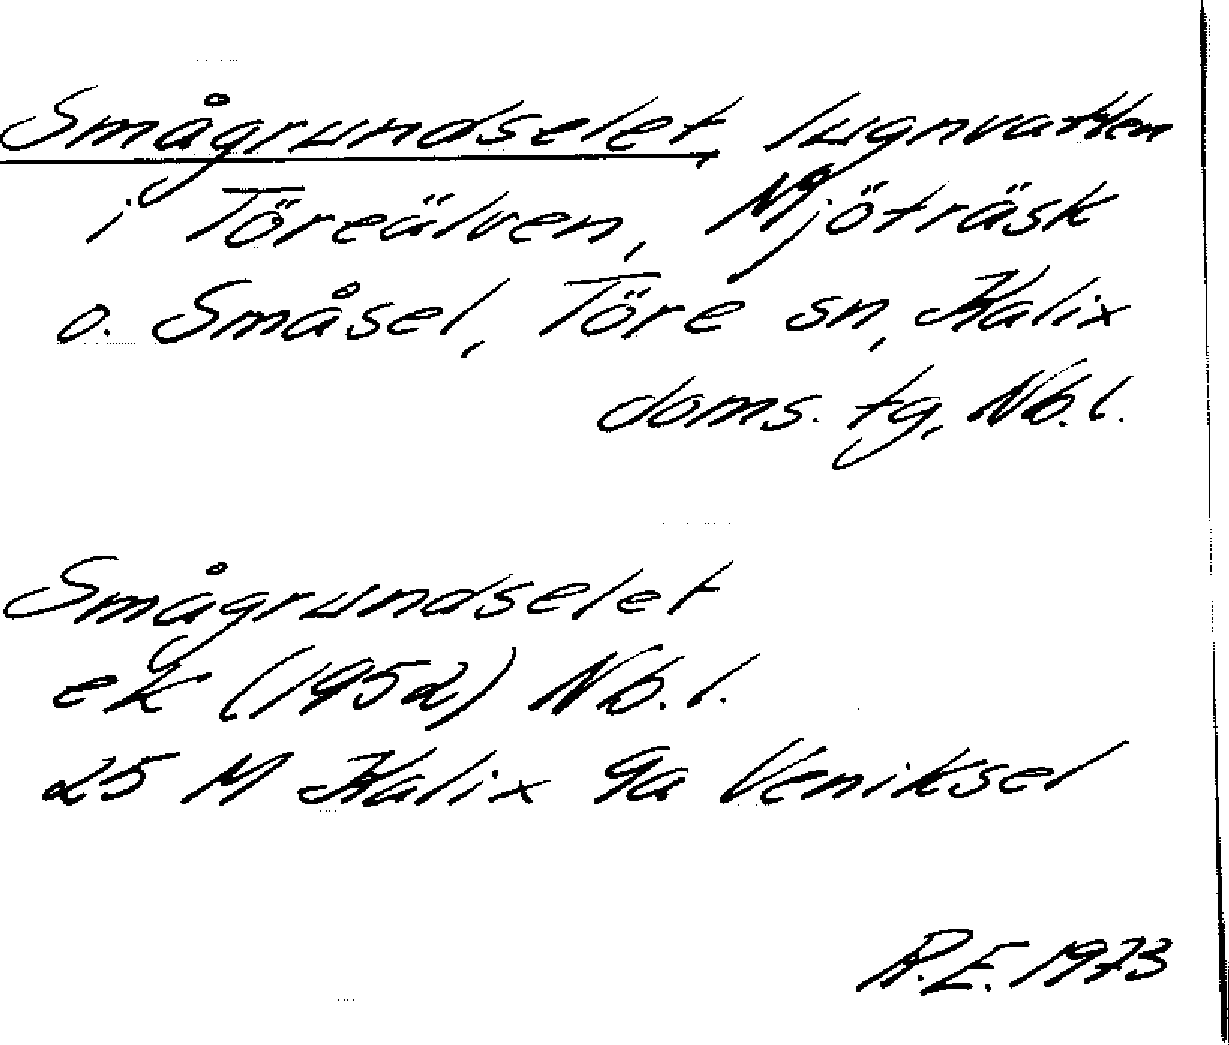 Smågrundselet, lugnvatten
i Töreälven, Mjöträsk
o. Småsel, Töre sn, Kalix
doms. tg, Nb. l.
Smågrundselet
ek (1952) Nb. l.
25 M Kalix 9a Veniksel
R.E. 1973